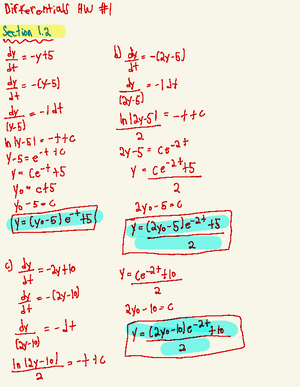 Differentials HW #1
Section 1.2
dy/dt = -y+5
dy/dt = -(y-5)
dy/(y-5) = -1dt
ln|y-5| = -t+c
y-5 = e^-t+c
y = Ce^-t+5
y₀ = c+5
y₀-5 = c
y = (y₀-5)e^-t+5
b) dy/dt = -(2y-5)
dy/(2y-5) = -1dt
ln|2y-5|/2 = -t+c
2y-5 = Ce^-2t
y = Ce^-2t+5/2
2y₀-5 = c
y = (2y₀-5)e^-2t+5/2
c) dy/dt = -2y+10
dy/dt = -(2y-10)
dy/(2y-10) = -dt
ln|2y-10|/2 = -t+c
y = Ce^-2t+10/2
2y₀-10 = c
y = (2y₀-10)e^-2t+10/2